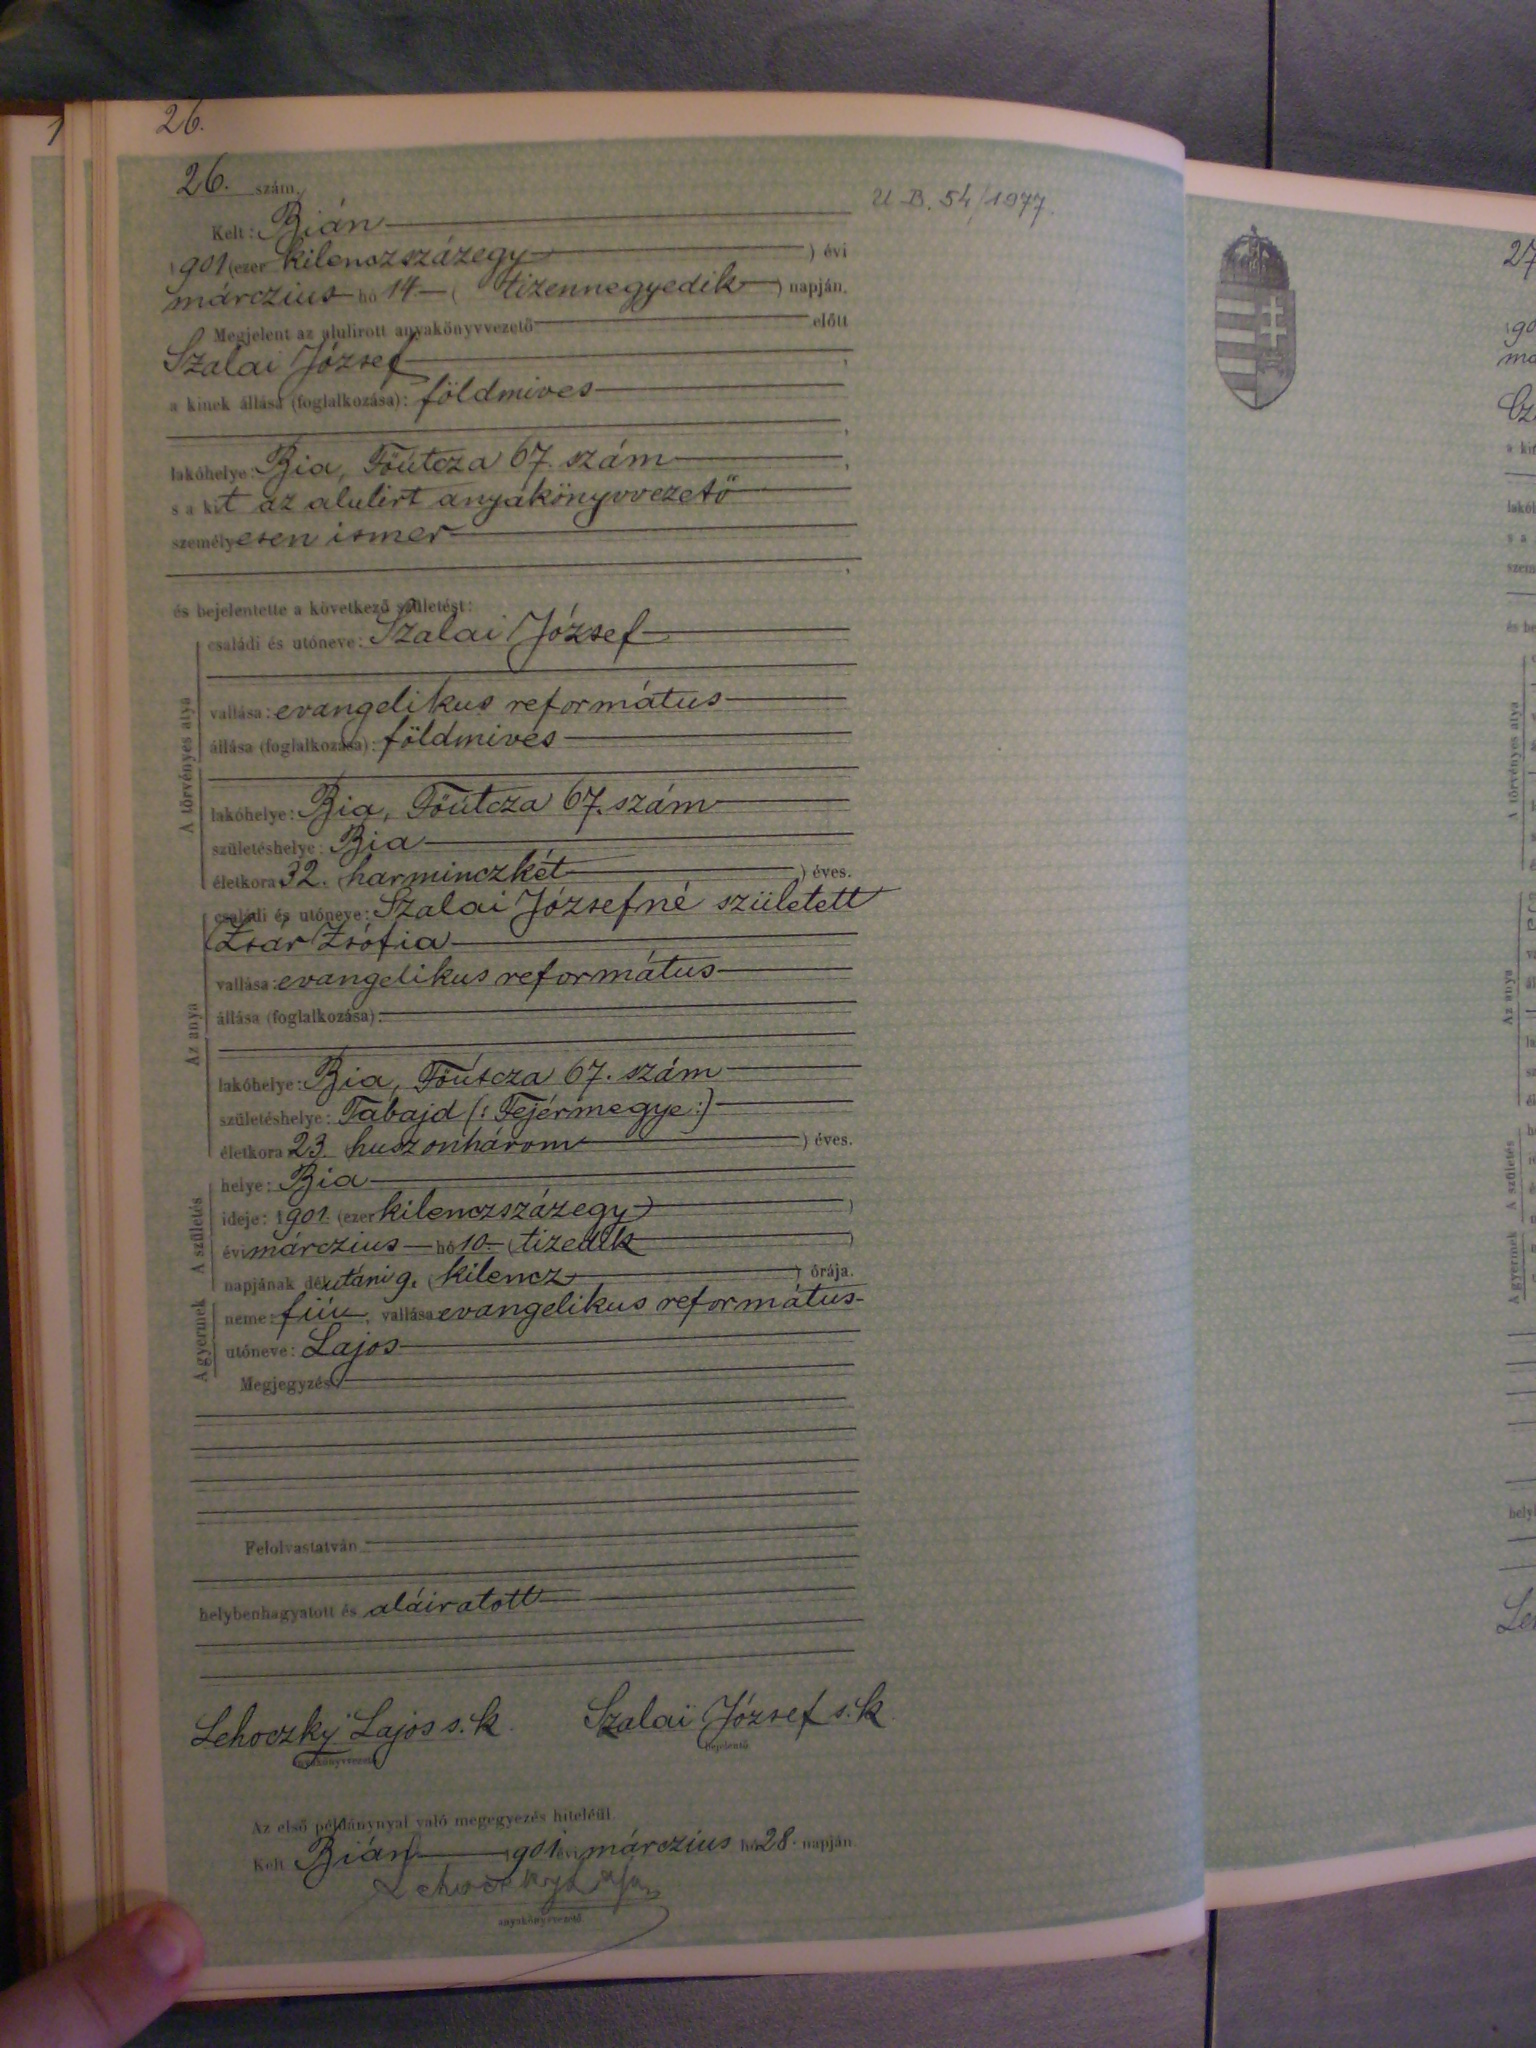 26.
26. szám.
U. B. 54/1977.
Kelt: Bián
1901 (ezer kilenczszázegy) évi
márczius hó 14 (tizennegyedik) napján.
Megjelent az alulirott anyakönyvvezető előtt
Szalai József,
a kinek állása (foglalkozása): földmives
lakóhelye: Bia, Főútcza 67. szám,
s a kit az alulirt anyakönyvvezető
személyesen ismer,
és bejelentette a következő születést:
A törvényes atya
családi és utóneve: Szalai József
vallása: evangelikus református
állása (foglalkozása): földmives
lakóhelye: Bia, Főútcza 67. szám
születéshelye: Bia
életkora 32. (harminczkét) éves.
Az anya
családi és utóneve: Szalai Józsefné született
Zsár Zsófia
vallása: evangelikus református
állása (foglalkozása):
lakóhelye: Bia, Főútcza 67. szám
születéshelye: Tabajd (: Fejérmegye :)
életkora 23. (huszonhárom) éves.
A születés
helye: Bia
ideje: 1901 (ezer kilenczszázegy)
évi márczius hó 10. (tizedik)
napjának délutáni 9. (kilencz) órája.
A gyermek
neme: fiú, vallása evangelikus református
utóneve: Lajos
Megjegyzés:
Felolvastatván
helybenhagyatott és aláiratott
Lehoczky Lajos s. k. Szalai József s. k.
anyakönyvvezető bejelentő
Az első példánynyal való megegyezés hiteléül.
Kelt Bián 1901 évi márczius hó 28. napján
Lehoczky Lajos
anyakönyvvezető
27